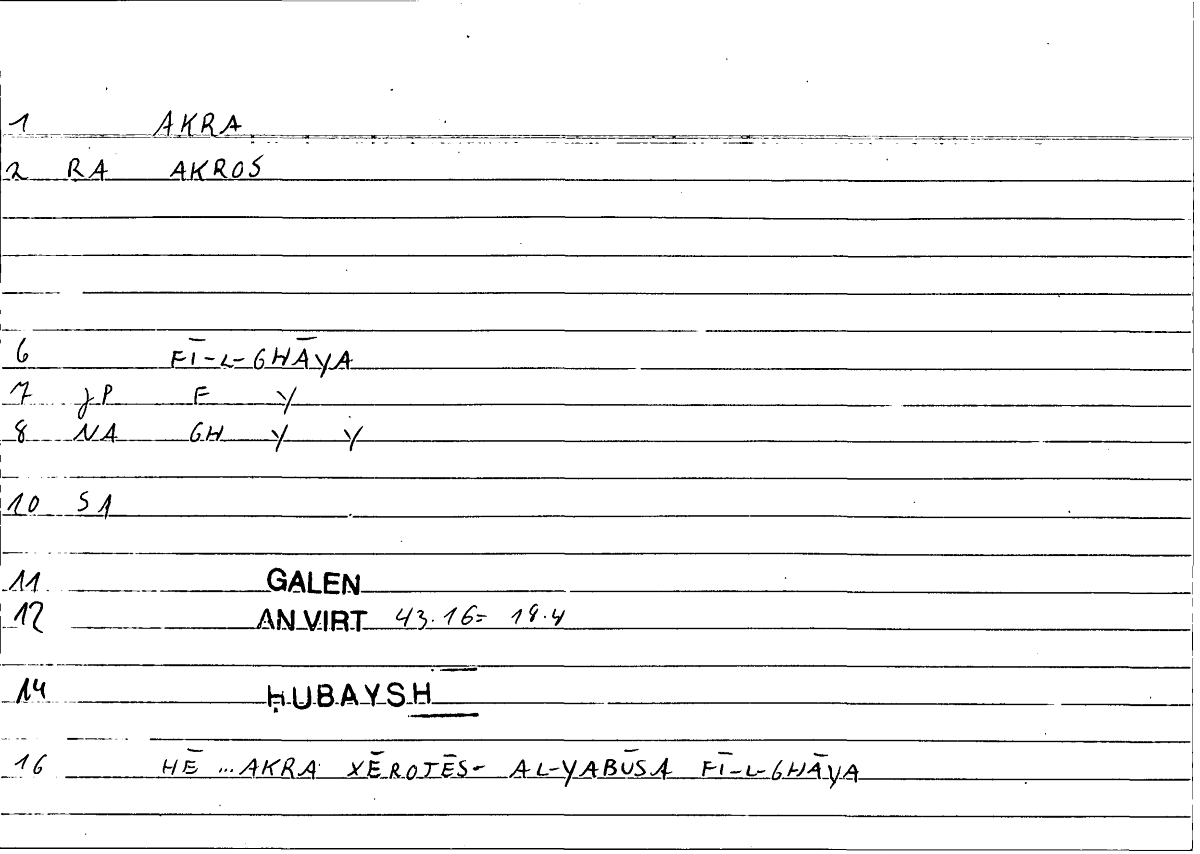 1 AKRA
2 RA AKROS
6 FĪ-L-GHĀYA
7 JP F Y
8 NA GH Y Y
10 SA
11 GALEN
12 AN VIRT 43.16= 18.4
14 ḤUBAYSH
16 HĒ ... AKRA XĒROTĒS- AL-YABŪSA FĪ-L-GHĀYA